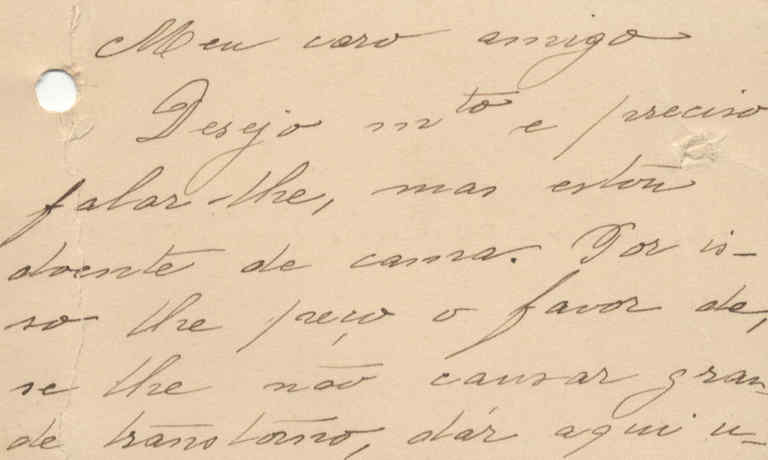 Meu caro amigo
Desejo mto e preciso
falar-lhe, mas estou
doente de cama. Por is-
so lhe peço o favor de,
se lhe não causar gran-
de transtorno, dár aqui u-